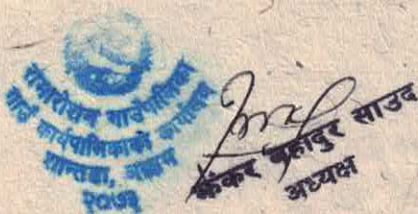 रामारोशन गाउँपालिका
गाउँ कार्यपालिकाको कार्यालय
शान्तडा, अछाम
२०७३
कंकर बहादुर साउद
अध्यक्ष